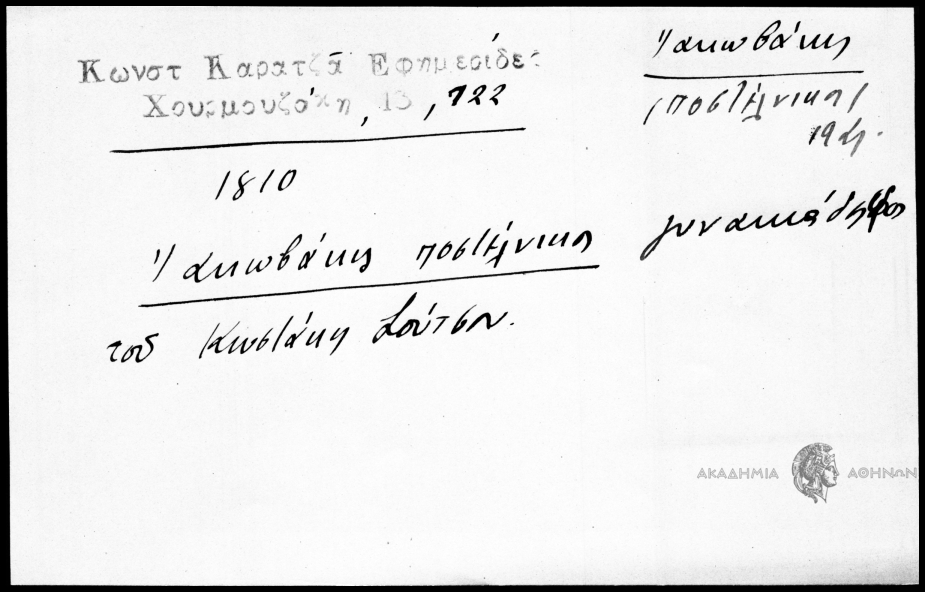 Κωνστ Καρατζᾶ Εφημερίδες
Χουρμουζάκη, 13, 722
Ἰακωβάκης
(ποστέλνικος)
1810
Ἰακωβάκης ποστέλνικος γυναικάδελφος
τοῦ Κωστάκη Σούτσου.
ΑΚΑΔΗΜΙΑ ΑΘΗΝΩΝ